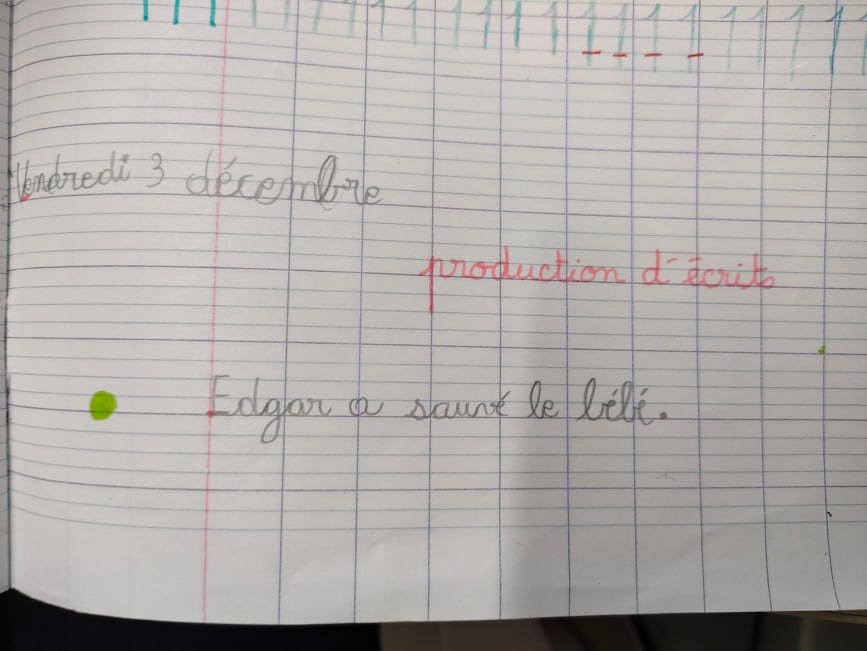 Vendredi 3 décembre
production d'écrits
Edgar a sauvé le bébé.